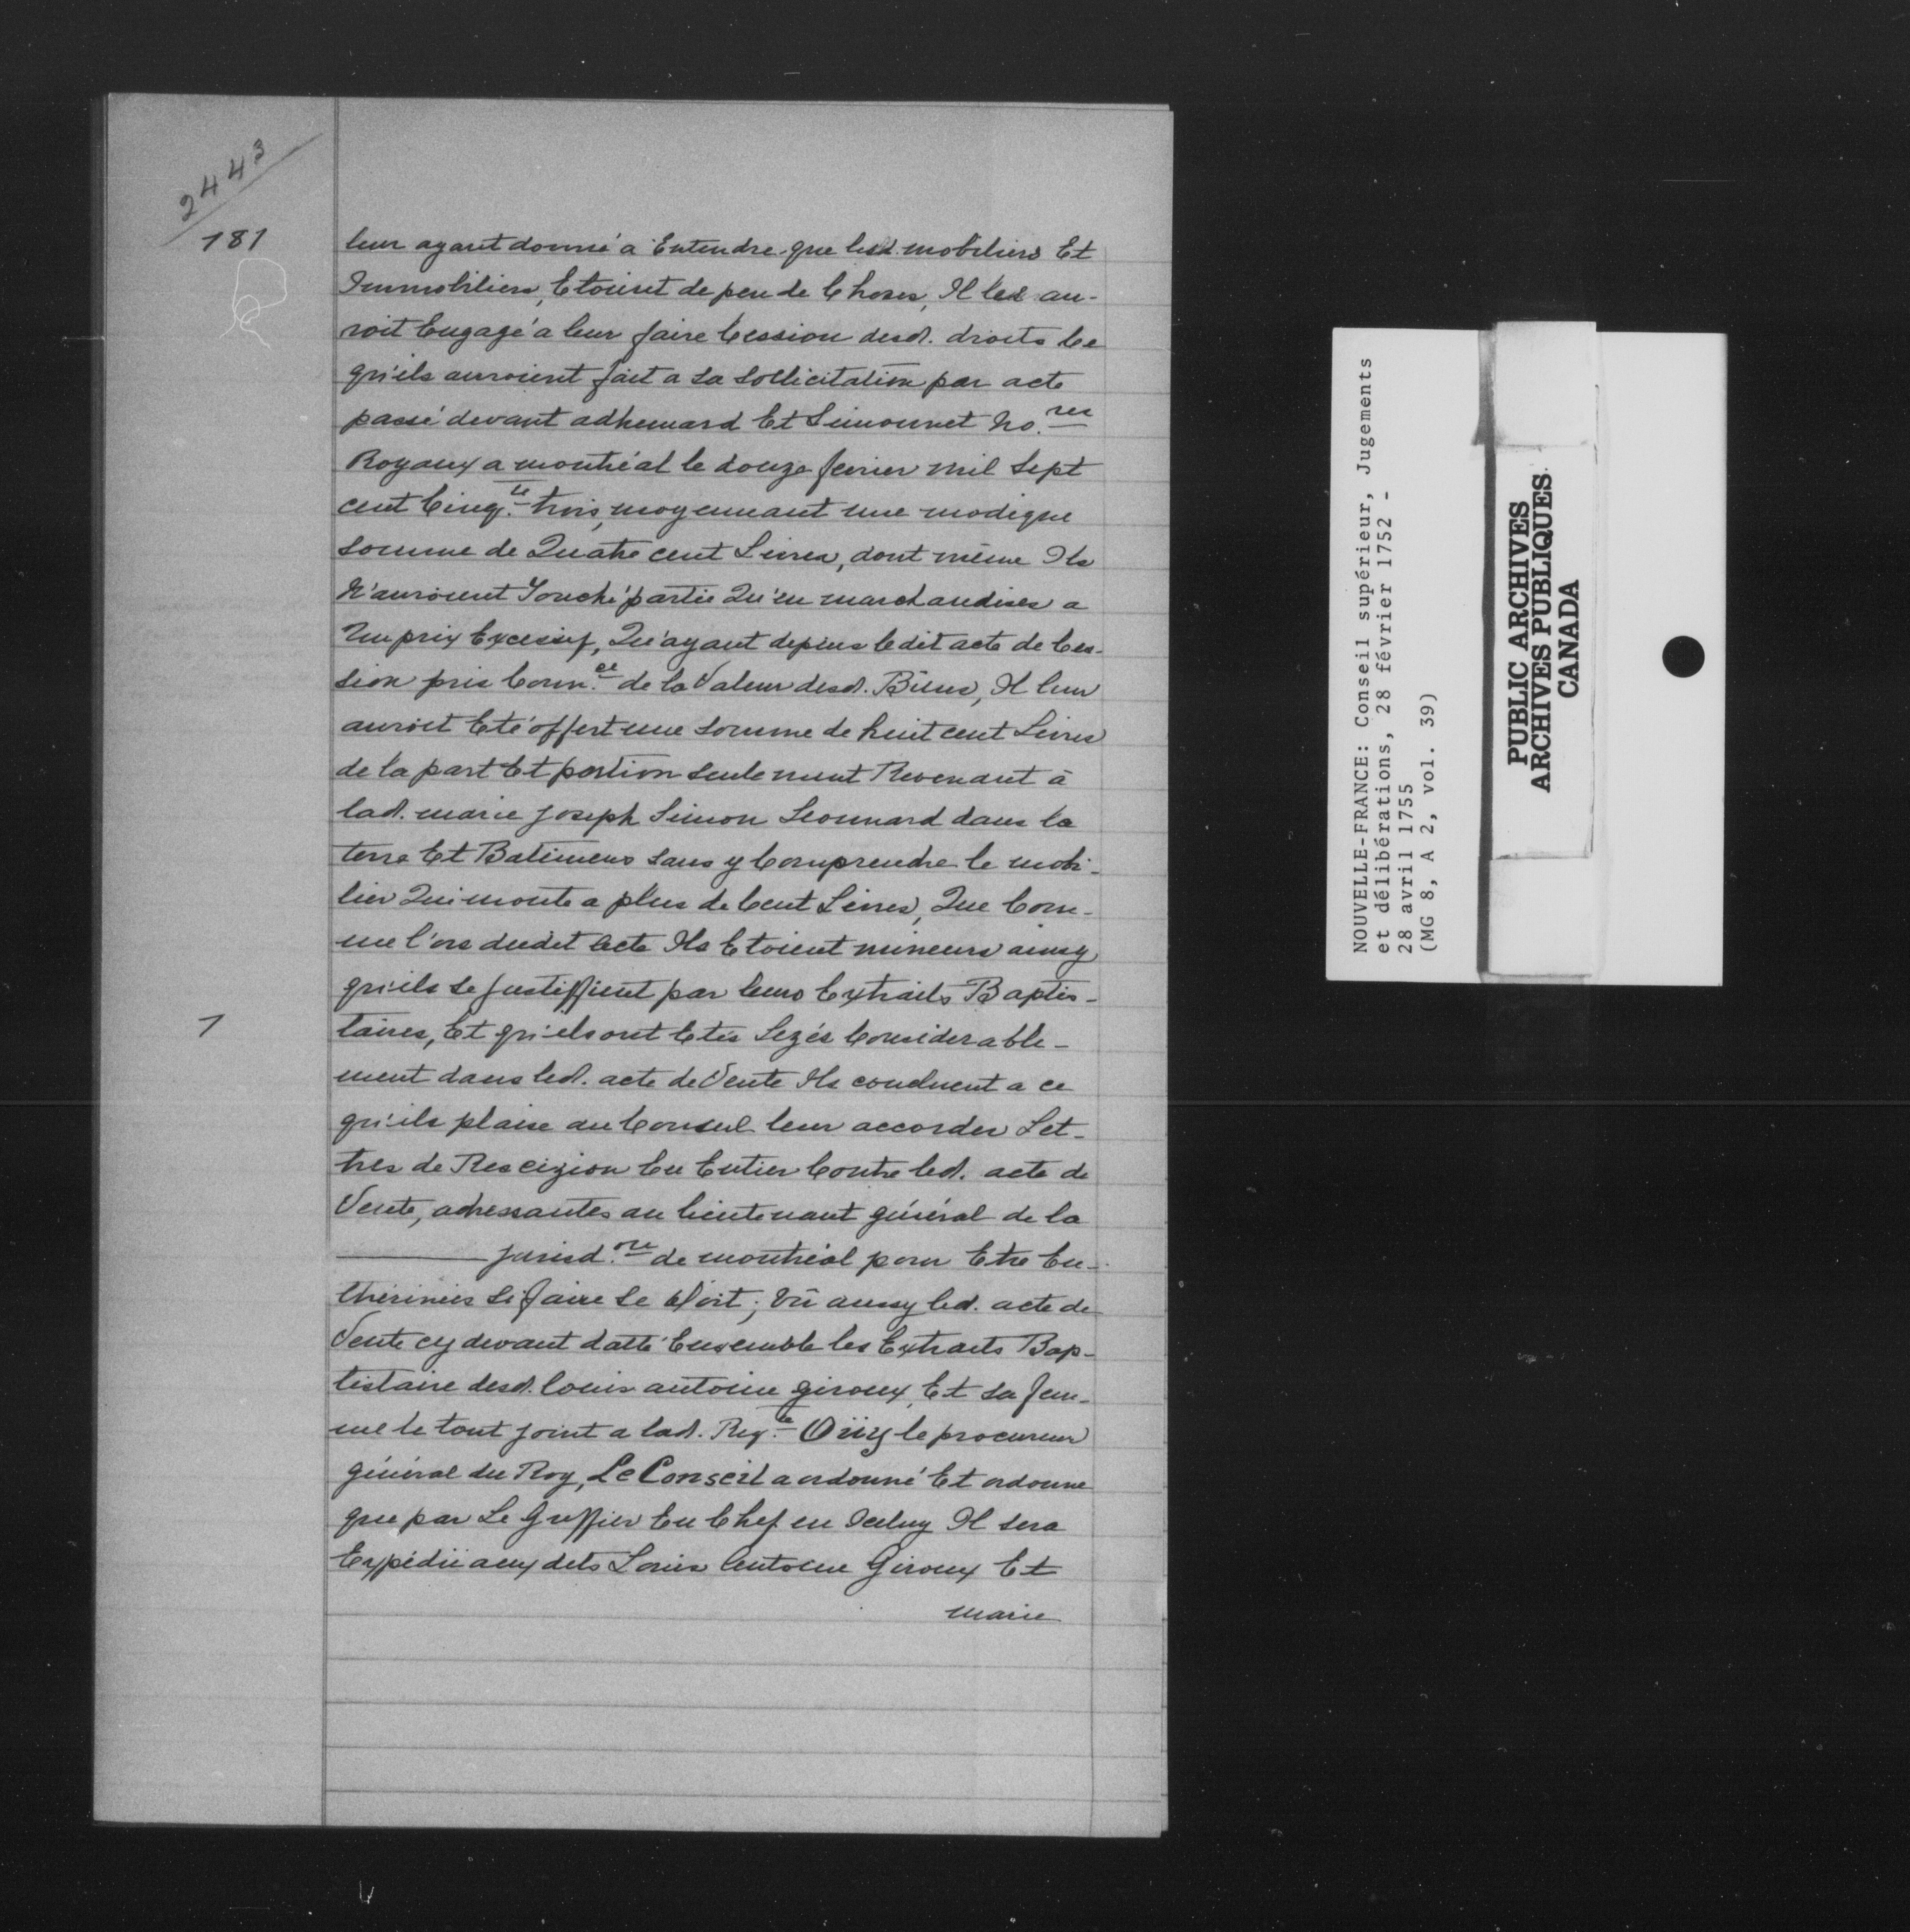 2443
181
leur ayant donné a Entendre que lesd. mobiliers Et
Immobiliers, Etoient de peu de Choses, Il les au-
roit Engagé a leur faire Cession desd. droits Ce
qu'ils auroient fait a sa sollicitation par acte
passé devant adhemard Et Simonnet No.res
Royaux a montréal le douze fevrier mil Sept
cent Cinq.te trois, moyennant une modique
somme de Quatre cent Livres, dont même Ils
N'auroient Touché partie Qu'en marchandises a
Un prix Excessif, Qu'ayant depuis ledit acte de Ces-
sion pris Conn.ce de la Valeur desd. Biens, Il leur
auroit Eté offert une somme de huit cent Livres
de la part Et portion seulement Revenant à
lad. marie Joseph Simon Leonnard dans la
terre Et Batimens sans y Comprendre le mobi-
lier Qui monte a plus de Cent Livres, Que Com-
me l'ors dudit acte Ils Etoient mineurs ainsy
qu'ils se Justiffient par leurs Extraits Baptis-
1
taires, Et qu'ils ont Etés Lezés Considerable-
ment dans led. acte de Vente Ils concluent a ce
qu'ils plaise au Conseil leur accorder Let-
tres de Rescizion En Entier Contre led. acte de
Vente, adressantes au lieutenant général de la
jurisd.on de montréal pour Etre En-
thérinées si faire se doit; Vû aussy led. acte de
Vente cy devant datté Ensemble les Extraits Bap-
tistaire desd. louis antoine giroux, Et sa fem-
me le tout joint a lad. Req.te Oüy le procureur
général du Roy, Le Conseil a ordonné Et ordonne
que par Le Greffier En Chef en Iceluy Il sera
Expédié aux dits Louis Antoine Giroux Et
marie
NOUVELLE-FRANCE: Conseil supérieur, Jugements
et délibérations, 28 février 1752 -
28 avril 1755
(MG 8, A 2, vol. 39)
PUBLIC ARCHIVES
ARCHIVES PUBLIQUES
CANADA